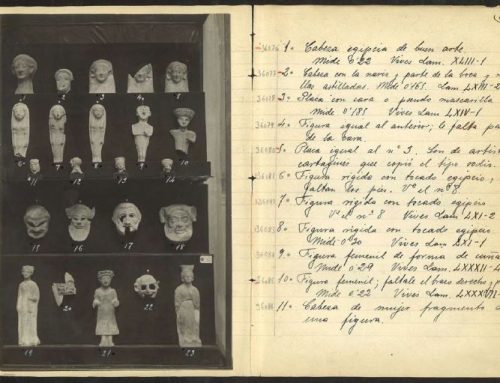 1 2 3 4 5
6 7 8 9 10
11 12 13 14
15 16 17 18
19 20 21 22 23
36076 1. Cabeza egipcia de buen arte.
Mide 0'22 Vives Lam. XLIII-1
36077 2. Cabeza con la nariz y parte de la boca y
llas astilladas. Mide 0'165. Lam LXIII-2
36078 3. Placa con cara o mascarilla
Mide 0'185 Vives Lam. LXIV-1
36079 4. Figura igual al anterior; le falta pa
de la cara.
36080 5. Placa igual al nº 3. Son de artist
cartagines que copió el tipo rodio.
6. Figura rigida con tocado egipcio;
faltan los pies. Vº el nº 8.
7. Figura rigida con tocado egipcio
Vº el nº 8 Vives Lam LXI-2
8. Figura rigida con tocado egipcio
Mide 0'20 Vives Lam LXI-1
9. Figura femenil de forma de
Mide 0'29 Vives Lam. LXXXII-
10. Figura femenil; faltale el brazo derecho y
Mide 0'22 Vives Lam. LXXXVII
11. Cabeza de mujer fragmento d
una figura.